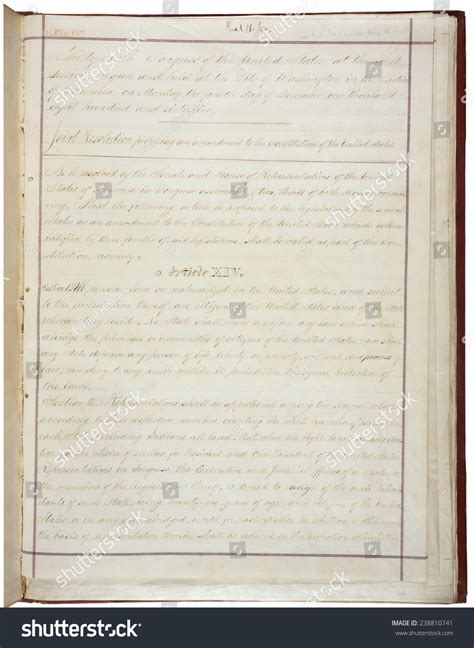 Congress of the United States, at the first
and held at the City of Washington, in the
on Monday the fourth day of December, one thousand
eight hundred and sixty-five.
Joint Resolution proposing an amendment to the Constitution of the United States.
Be it resolved by the Senate and House of Representatives of the
States of America in Congress assembled, two thirds of both
That the following article be proposed to the legislatures of the several
States as an amendment to the Constitution of the United States, which, when
ratified by three fourths of said legislatures, shall be valid as part of the Con-
stitution, namely:
Article XIV.
Section 1. All persons born or naturalized in the United States, and subject
to the jurisdiction thereof, are citizens of the United States and of the State
wherein they reside. No State shall make or enforce any law which shall
abridge the privileges or immunities of citizens of the United States; nor shall
any State deprive any person of life, liberty, or property, without due process of
law; nor deny to any person within its jurisdiction the equal protection of
the laws.
Section 2. Representatives shall be apportioned among the several
according to their respective numbers, counting the whole number of
each State, excluding Indians not taxed. But when the right to vote at any election
for the choice of electors for President and Vice President of the United States,
Representatives in Congress, the Executive and Judicial officers of a State, or
the members of the Legislature thereof, is denied to any of the male inhabi-
tants of such State, being twenty-one years of age, and citizens of the United
States, or in any way abridged, except for participation in rebellion, or other
the basis of representation therein shall be reduced in the proportion which the
shutterstock
IMAGE ID: 238810741
www.shutterstock.com